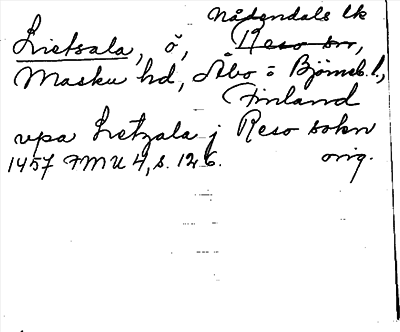 Nådendals lk
Lietsala, ö, Reso sn,
Masku hd, Åbo = Björneb. l.,
Finland
vpa Lietzala j Reso sokn
1457 FMU 4, s. 126. orig.